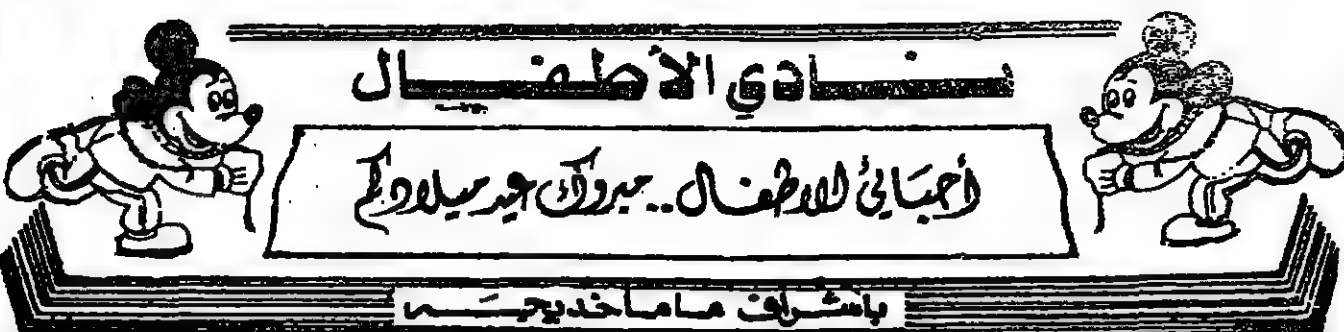 نادي الأطفال
أحبائي الأطفال .. مبروك عيد ميلادكم
باشراف ماما خديجة